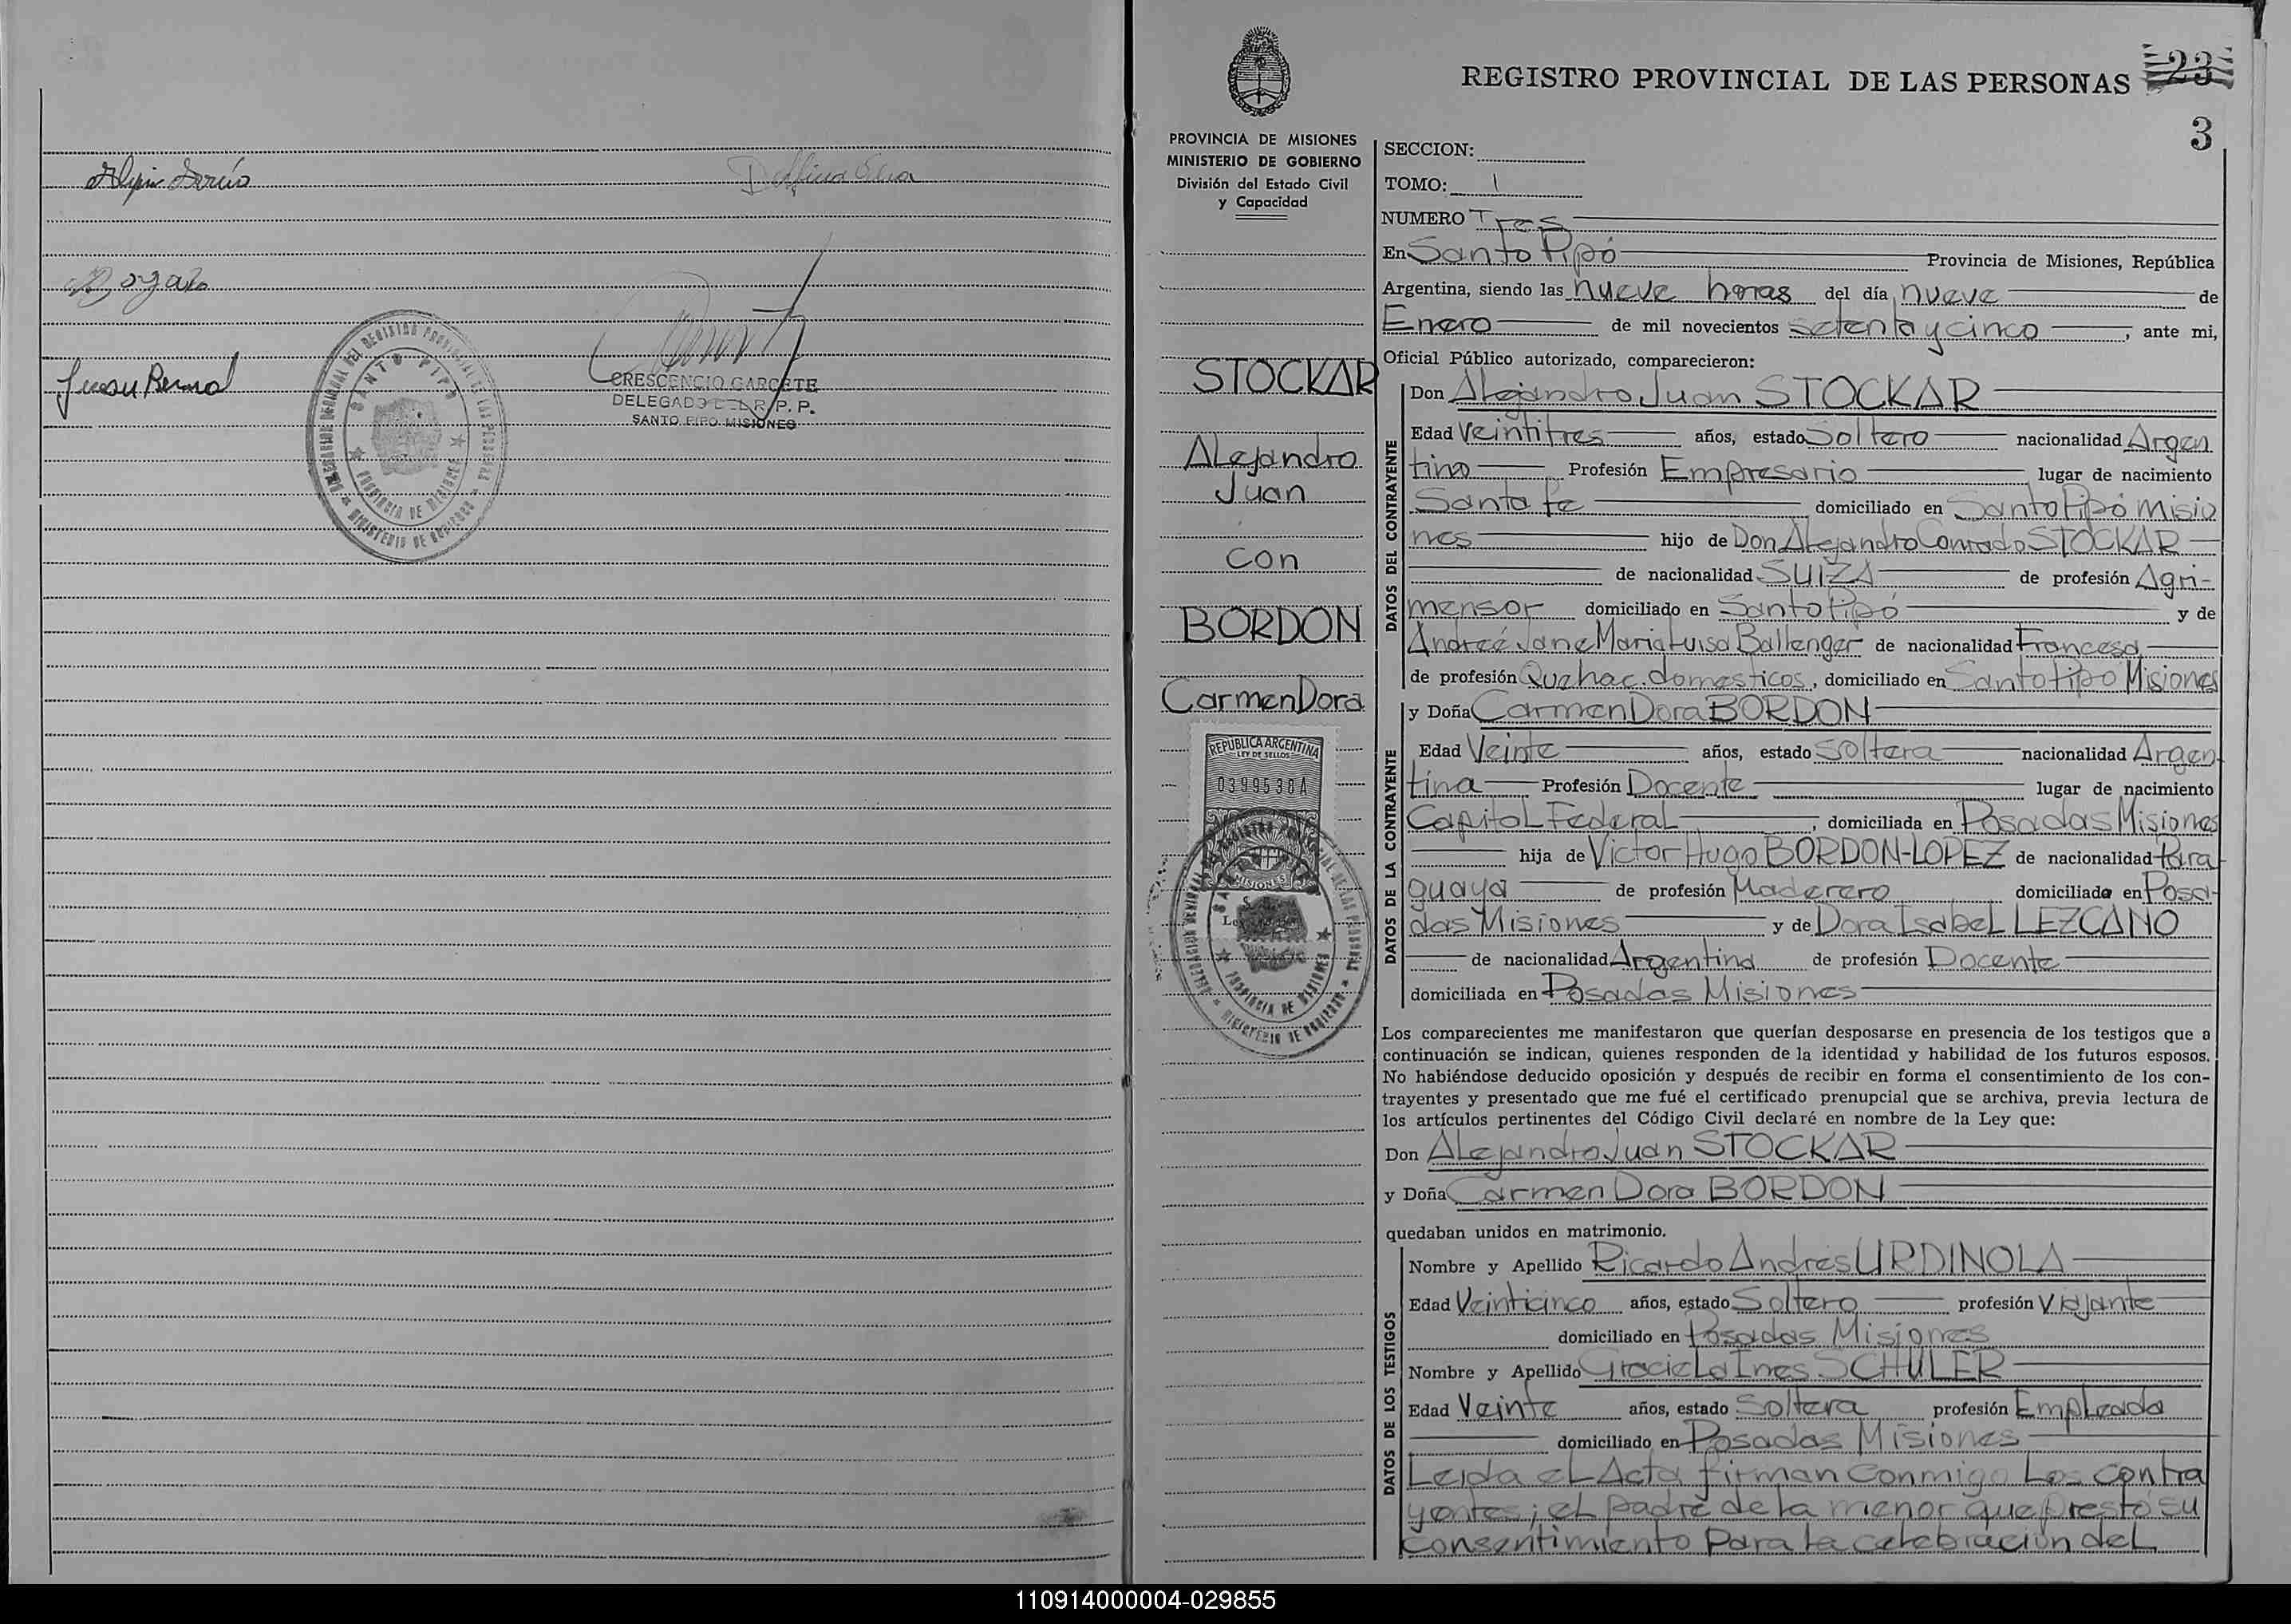 Delfina Silva
CRESCENCIO GARCETE
DELEGADO DEL R. P. P.
SANTO PIPO MISIONES
DIRECCION GENERAL DEL REGISTRO PROVINCIAL DE LAS PERSONAS
SANTO PIPO
PROVINCIA DE MISIONES
MINISTERIO DE GOBIERNO
REGISTRO PROVINCIAL DE LAS PERSONAS 23
3
PROVINCIA DE MISIONES
MINISTERIO DE GOBIERNO
División del Estado Civil
y Capacidad
STOCKAR
Alejandro
Juan
con
BORDON
Carmen Dora
REPUBLICA ARGENTINA
LEY DE SELLOS
0399538A
MISIONES
PROVINCIA DE MISIONES
MINISTERIO DE GOBIERNO
SECCION:
TOMO: 1
NUMERO Tres
En Santo Pipó Provincia de Misiones, República
Argentina, siendo las nueve horas del día nueve de
Enero de mil novecientos setenta y cinco, ante mi,
Oficial Público autorizado, comparecieron:
DATOS DEL CONTRAYENTE
Don Alejandro Juan STOCKAR
Edad Veintitres años, estado Soltero nacionalidad Argen
tino Profesión Empresario lugar de nacimiento
Santa Fe domiciliado en Santo Pipó Misio
nes hijo de Don Alejandro Conrado STOCKAR
de nacionalidad SUIZA de profesión Agri-
mensor domiciliado en Santo Pipó y de
Andreé Jane Maria Luisa Ballenger de nacionalidad Francesa
de profesión Quehac. domesticos, domiciliado en Santo Pipo Misiones
DATOS DE LA CONTRAYENTE
y Doña Carmen Dora BORDON
Edad Veinte años, estado Soltera nacionalidad Argen
tina Profesión Docente lugar de nacimiento
Capital Federal, domiciliada en Posadas Misiones
hija de Victor Hugo BORDON-LOPEZ de nacionalidad Para
guaya de profesión Maderero domiciliado en Posa-
das Misiones y de Dora Isabel LEZCANO
de nacionalidad Argentina de profesión Docente
domiciliada en Posadas Misiones
Los comparecientes me manifestaron que querían desposarse en presencia de los testigos que a
continuación se indican, quienes responden de la identidad y habilidad de los futuros esposos.
No habiéndose deducido oposición y después de recibir en forma el consentimiento de los con-
trayentes y presentado que me fué el certificado prenupcial que se archiva, previa lectura de
los artículos pertinentes del Código Civil declaré en nombre de la Ley que:
Don Alejandro Juan STOCKAR
y Doña Carmen Dora BORDON
quedaban unidos en matrimonio.
DATOS DE LOS TESTIGOS
Nombre y Apellido Ricardo Andrés URDINOLA
Edad Veinticinco años, estado Soltero profesión Viajante
domiciliado en Posadas Misiones
Nombre y Apellido Graciela Ines SCHULER
Edad Veinte años, estado Soltera profesión Empleada
domiciliado en Posadas Misiones
Leida el Acta firman conmigo los contra
yentes; el padre de la menor que prestó su
consentimiento para la celebración del
110914000004-029855